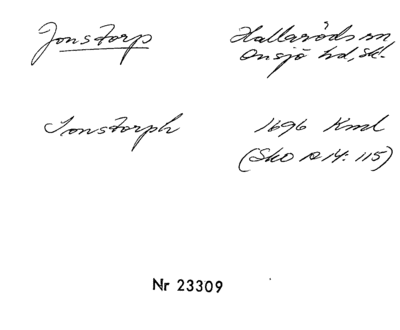 Jonstorp
Hallaröds sn,
Onsjö hd, Sk.
Jonstorph
1696 Kml
(Sko A 14: 115)
Nr 23309